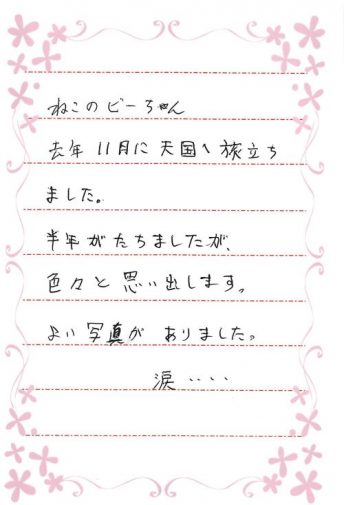 ねこのビーちゃん
去年11月に天国へ旅立ち
ました。
半年がたちましたが、
色々と思い出します。
よい写真がありました。
涙‥‥